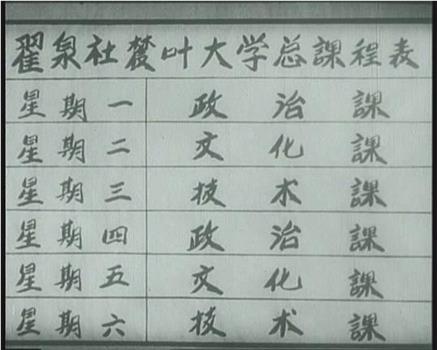 翟泉社叶大学总課程表
星期一 政治課
星期二 文化課
星期三 技术課
星期四 政治課
星期五 文化課
星期六 技术課